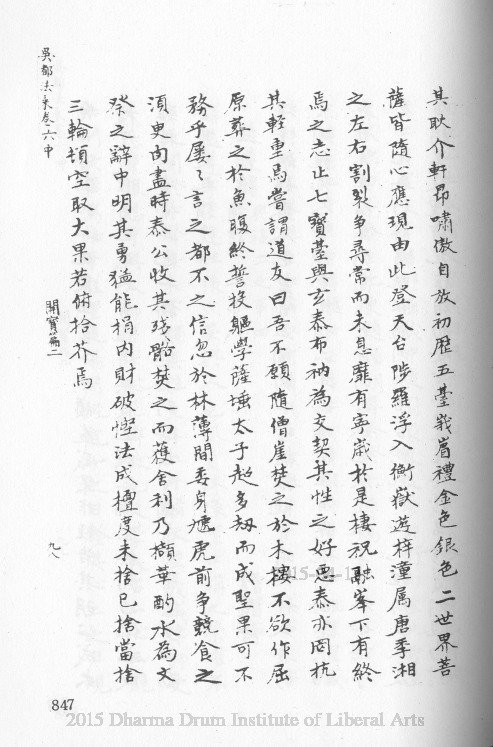 其耿介軒昂嘯傲自放初歷五臺峩眉禮金色銀色二世界菩
薩皆隨心應現由此登天台陟羅浮入衡嶽遊梓潼属唐季湘
之左右割裂争尋常而未息靡有寧歲於是棲祝融峯下有終
焉之志止七寶臺與玄泰布衲為交契其性之好惡泰亦罔抗
其輕重焉嘗謂道友曰吾不願隨僧崖焚之於木樓不欲作屈
原葬之於魚腹終誓投軀學薩埵太子超多劫而成聖果可不
務乎屢々言之都不之信忽於林薄間委身虓虎前争競食之
須臾肉盡時泰公收其殘骸焚之而獲舍利乃擷華酌水為文
祭之辭中明其勇猛能捐内財破慳法成檀度未捨已捨當捨
三輪頓空取大果若俯拾芥焉
吳都法乘卷六中
開寶篇二
九八
847
2015-04-1
2015 Dharma Drum Institute of Liberal Arts